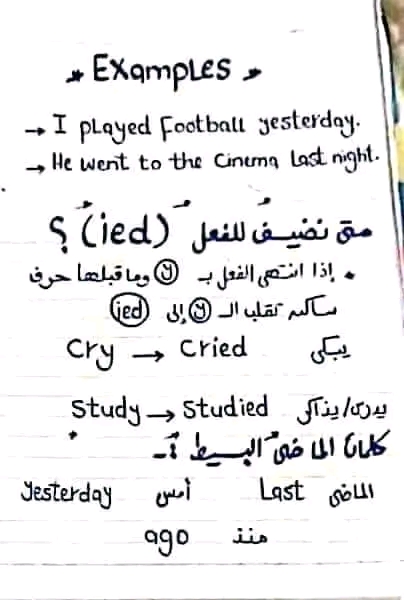 * Examples *
→ I played Football yesterday.
→ He went to the Cinema Last night.
متى نضيف للفعل (ied) ؟
• إذا انتهى الفعل بـ (y) وما قبلها حرف
ساكن تقلب الـ (y) إلى (ied)
Cry → Cried يبكى
Study → Studied يدرس/يذاكر
كلمات الماضى البسيط :-
yesterday أمس Last الماضى
ago منذ